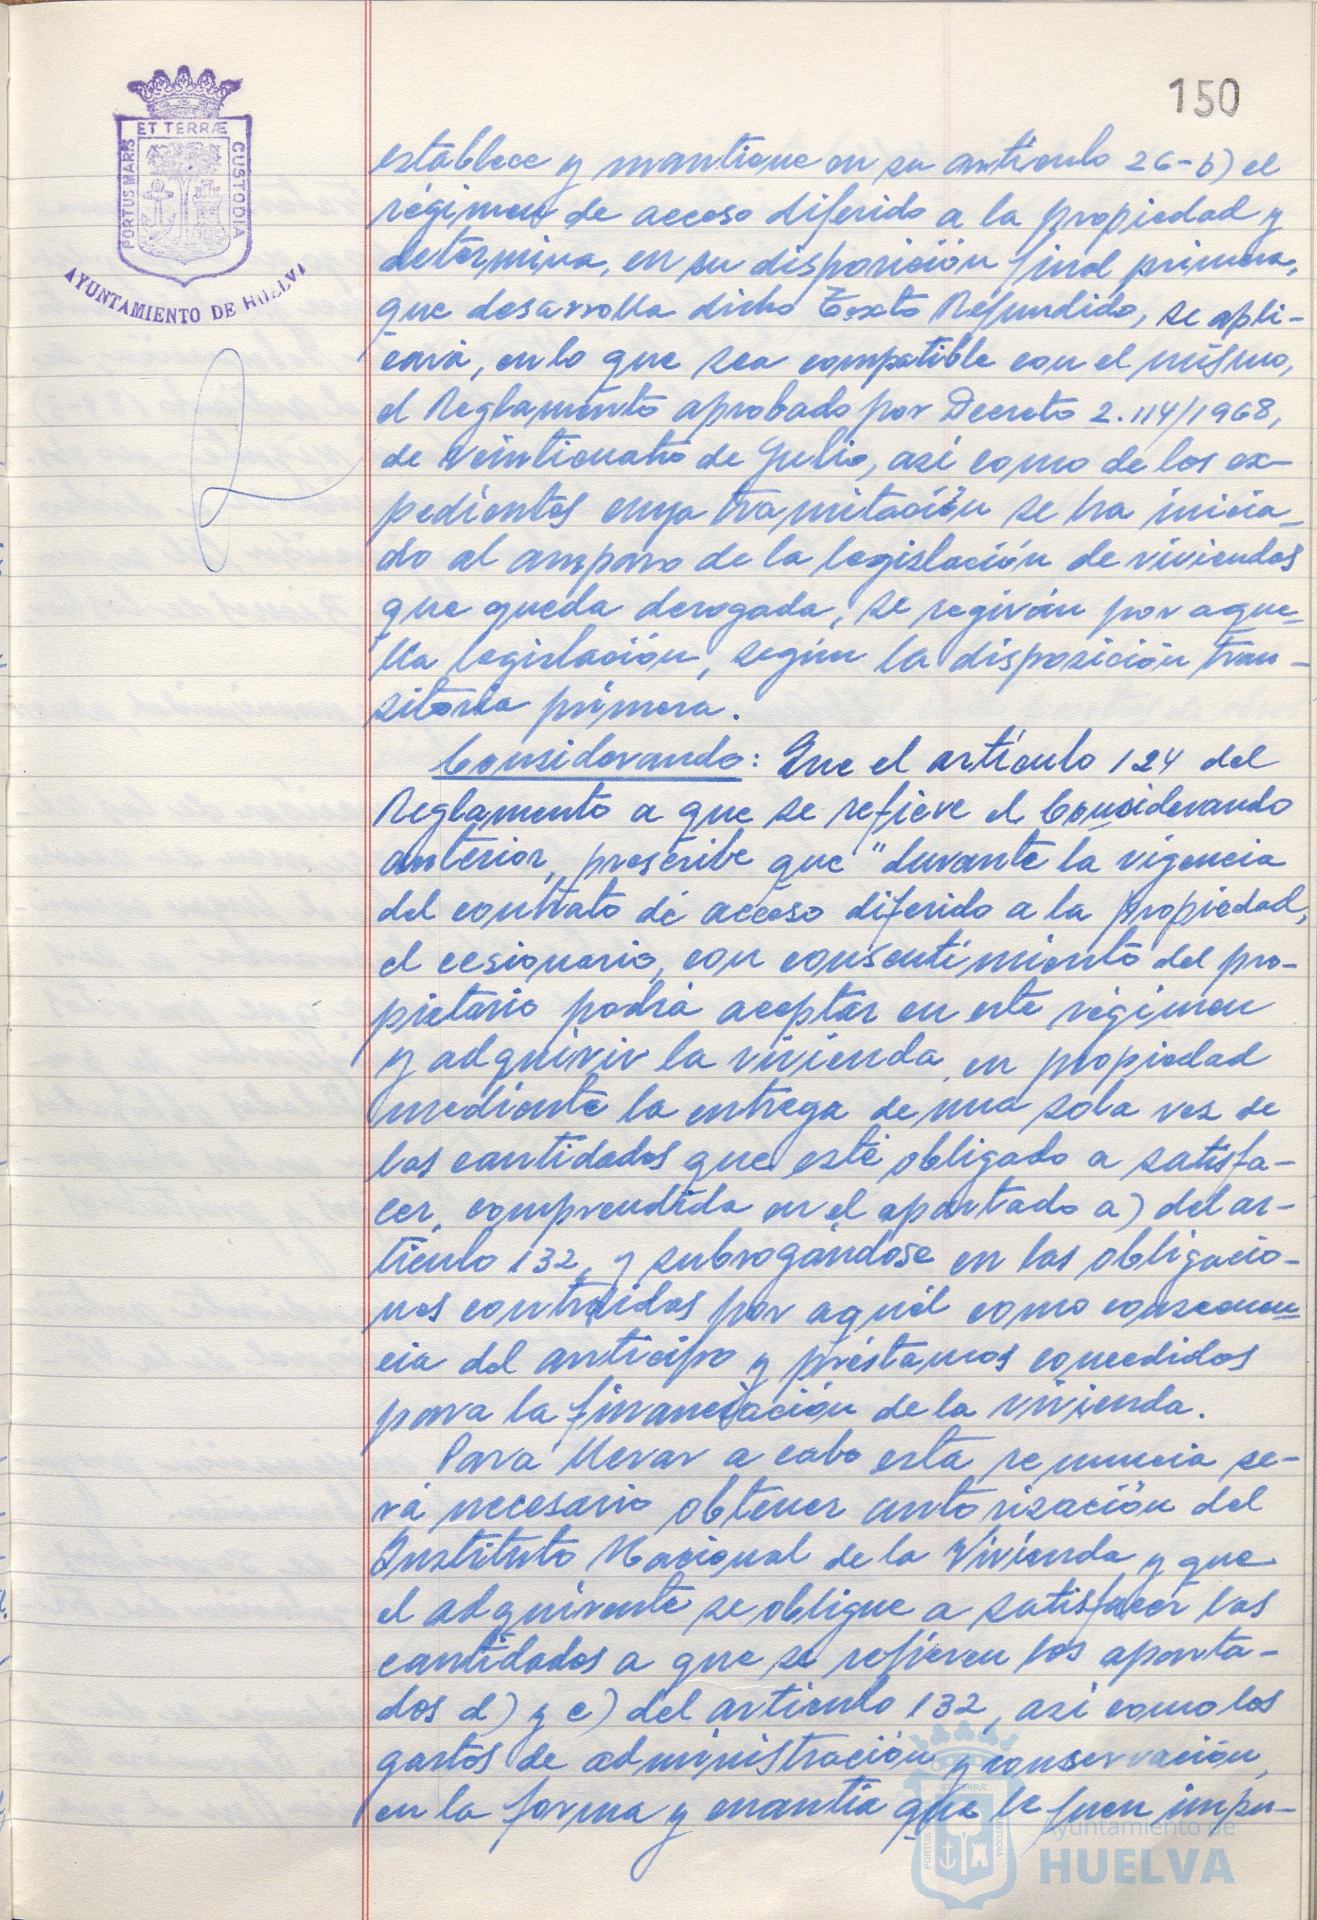 150
ET TERRÆ
PORTUS MARIS
CUSTODIA
AYUNTAMIENTO DE HUELVA
establece y mantiene en su artículo 26-b) el
régimen de acceso diferido a la propiedad y
determina, en su disposición final primera,
que desarrolla dicho Texto Refundido, se apli-
cará, en lo que sea compatible con el mismo,
el Reglamento aprobado por Decreto 2.114/1968,
de veinticuatro de Julio, así como de los ex-
pedientes cuya tramitación se ha inicia-
do al amparo de la legislación de viviendas
que queda derogada, se regirán por aque-
lla legislación, según la disposición tran-
sitoria primera.
Considerando: Que el artículo 124 del
Reglamento a que se refiere el Considerando
anterior, prescribe que "durante la vigencia
del contrato de acceso diferido a la propiedad,
el cesionario, con consentimiento del pro-
pietario podrá aceptar en este régimen
y adquirir la vivienda en propiedad
mediante la entrega de una sola vez de
las cantidades que esté obligado a satisfa-
cer, comprendida en el apartado a) del ar-
tículo 132, y subrogándose en las obligacio-
nes contraidas por aquél como consecuen-
cia del anticipo y préstamos concedidos
para la financiación de la vivienda.
Para llevar a cabo esta renuncia se-
rá necesario obtener autorización del
Instituto Nacional de la Vivienda y que
el adquirente se obligue a satisfacer las
cantidades a que se refieren los aparta-
dos d) y e) del artículo 132, así como los
gastos de administración y conservación,
en la forma y cuantía que le fuen impu-
ET TERRÆ
PORTUS
CUSTODIA
Ayuntamiento de
HUELVA